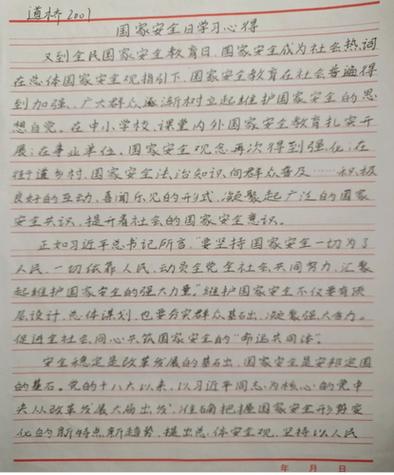 道桥2001
国家安全日学习心得
又到全民国家安全教育日,国家安全成为社会热词
在总体国家安全观指引下,国家安全教育在社会普遍得
到加强、广大群众逐渐树立起维护国家安全的思
想自觉。在中小学校,课堂内外国家安全教育扎实开
展;在事业单位、国家安全观念再次得到强化;在
街道乡村,国家安全法治知识向群众普及……积极
良好的互动、喜闻乐见的形式,凝聚起广泛的国家
安全共识,提升着社会的国家安全意识。
正如习近平总书记所言,“要坚持国家安全一切为了
人民,一切依靠人民,动员全党全社会共同努力,汇聚
起维护国家安全的强大力量。”维护国家安全不仅要有顶
层设计、总体谋划,也要夯实群众基础,凝聚强大合力。
促进全社会,同心共筑国家安全的“命运共同体”。
安全稳定是改革发展的基础,国家安全是安邦定国
的基石。党的十八大以来,以习近平同志为核心的党中
央从改革发展大局出发,准确把握国家安全形势变
化的新特点新趋势,提出总体安全观,坚持以人民
年 月 日